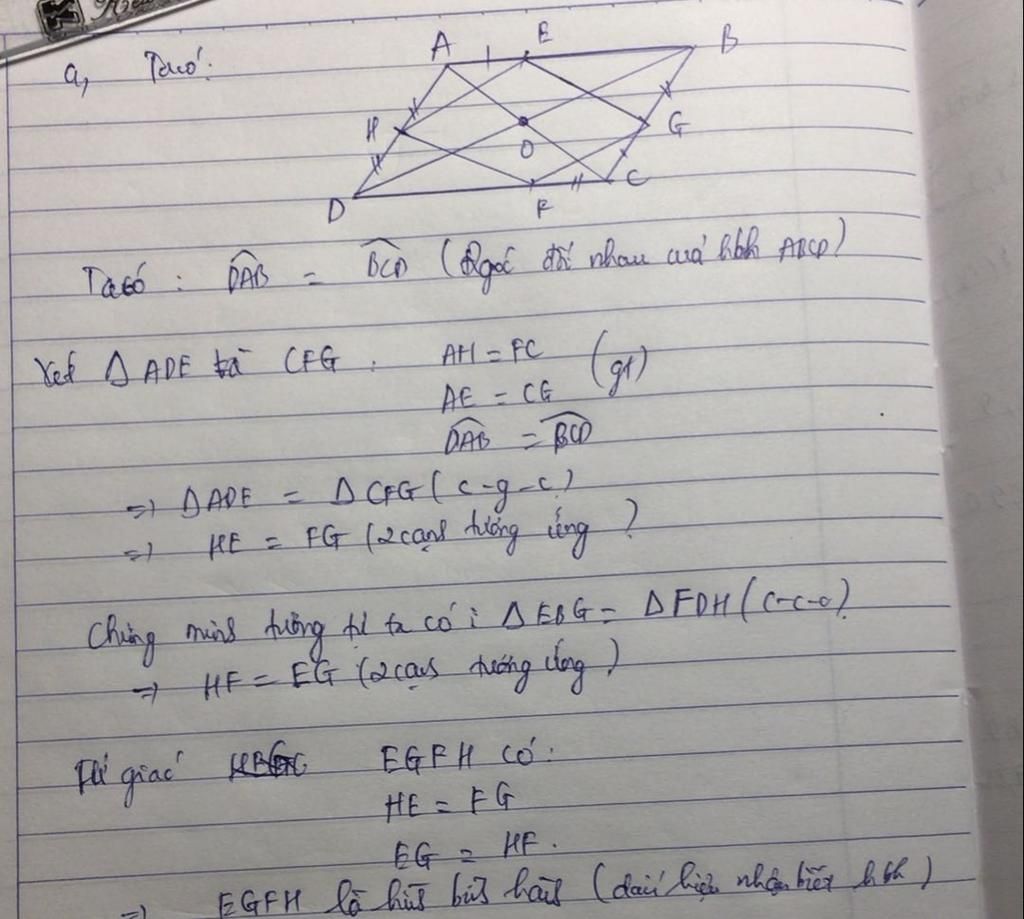 a, Ta có:
A E B
H G
O
D F C
Ta có : DAB = BCD (2 góc đối nhau của hbh ABCD)
Xét Δ ADE và CFG : AH = FC (gt)
AE = CG
DAB = BCD
=> Δ ADE = Δ CFG ( c-g-c)
=> HE = FG (2 cạnh tương ứng )
Chứng minh tương tự ta có : Δ EBG = Δ FDH ( c-c-c)
=> HF = EG (2 cạnh tương ứng )
Tứ giác EGFH có:
HE = FG
EG = HF.
=> EGFH là hình bình hành (dấu hiệu nhận biết hbh )